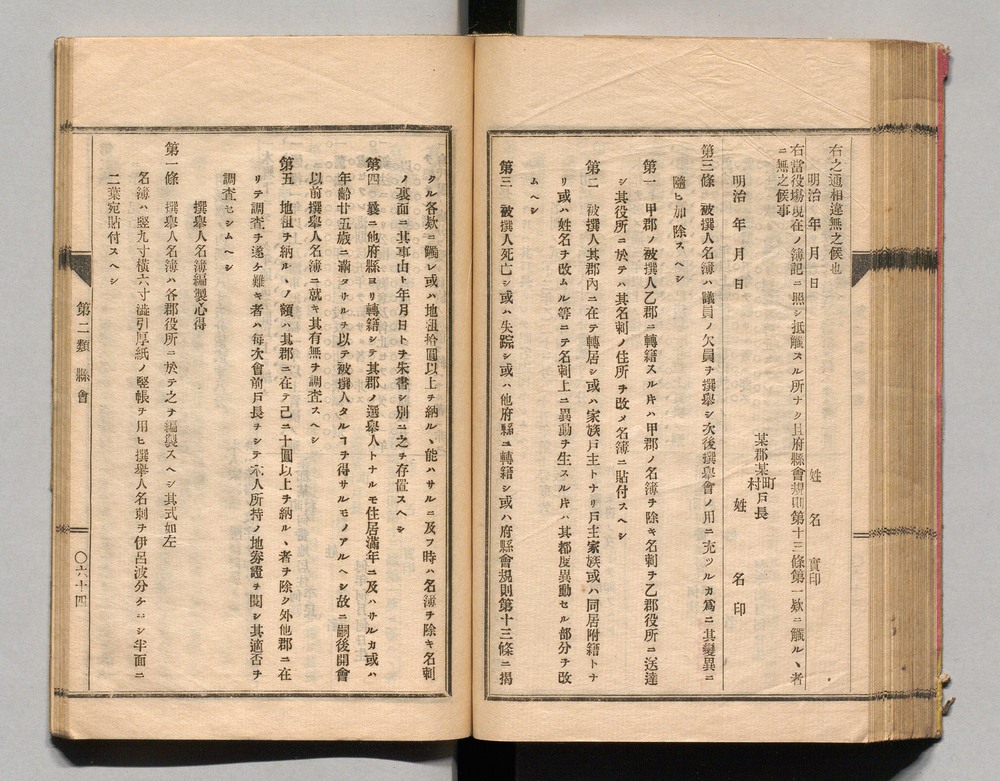 右之通相違無之候也
明治 年 月 日
姓 名 實印
右當役場現在ノ簿記ニ照シ抵觸スル所ナク且府縣會規則第十三條第一欵ニ觸ルヽ者
ニ無之候事
某郡某町村戸長
明治 年 月 日 姓 名 印
第三條 被撰人名簿ハ議員ノ欠員ヲ撰擧シ次後撰擧會ノ用ニ充ツルカ爲ニ其變異ニ
隨ヒ加除スヘシ
第一 甲郡ノ被撰人乙郡ニ轉籍スル片ハ甲郡ノ名簿ヲ除キ名刺ヲ乙郡役所ニ送達
シ其役所ニ於テハ其名刺ノ住所ヲ改メ名簿ニ貼付スヘシ
第二 被撰人其郡內ニ在テ轉居シ或ハ家族戸主トナリ戸主家族或ハ同居附籍トナ
リ或ハ姓名ヲ改ムル等ニテ名刺上ニ異動ヲ生スル片ハ其都度異動セル部分ヲ改
ムヘシ
第三 被撰人死亡シ或ハ失踪シ或ハ他府縣ニ轉籍シ或ハ府縣會規則第十三條ニ揭
クル各欵ニ觸レ或ハ地租拾圓以上ヲ納ルヽ能ハサルニ及フ時ハ名簿ヲ除キ名刺
ノ裏面ニ其事由ト年月日トヲ朱書シ別ニ之ヲ存置スヘシ
第四 曩ニ他府縣ヨリ轉籍シテ其郡ノ選擧人トナルモ住居滿年ニ及ハサルカ或ハ
年齡廿五歳ニ滿タサルヲ以テ被撰人タルヿヲ得サルモノアルヘシ故ニ嗣後開會
以前撰擧人名簿ニ就キ其有無ヲ調査スヘシ
第五 地租ヲ納ルヽノ額ハ其郡ニ在テ己ニ十圓以上ヲ納ルヽ者ヲ除ク外他郡ニ在
リテ調査ヲ遂ケ難キ者ハ每次會前戸長ヲシテ本人所持ノ地券證ヲ閱シ其適否ヲ
調査セシムヘシ
撰擧人名簿編製心得
第一條 撰擧人名簿ハ各郡役所ニ於テ之ヲ編製スヘシ其式如左
名簿ハ竪九寸橫六寸澁引厚紙ノ竪帳ヲ用ヒ撰擧人名刺ヲ伊呂波分ケニシ半面ニ
二葉宛貼付スヘシ
第二類 縣會
〇六十四